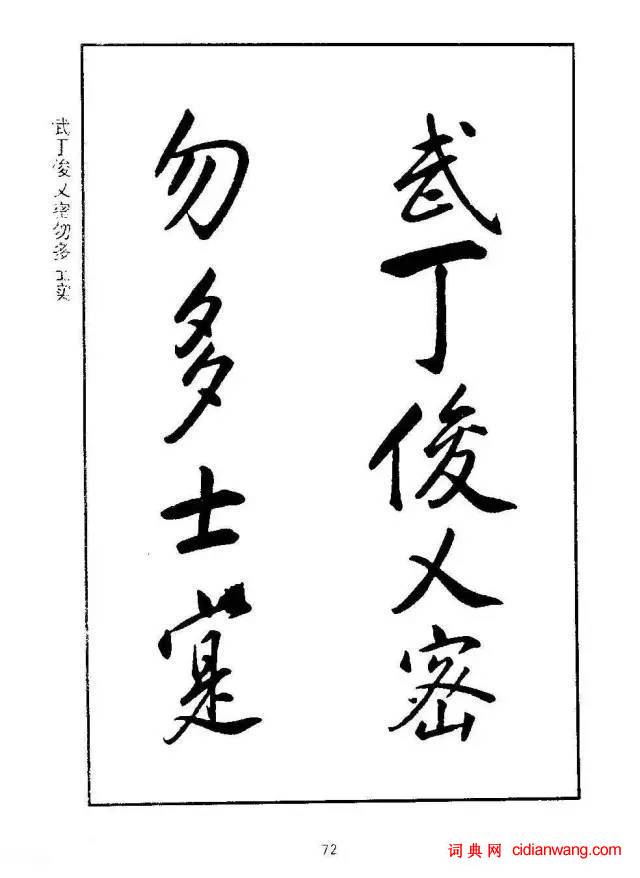 武丁俊乂密
勿多士寔
武丁俊乂密勿多士实
72
词典网 cidianwang.com